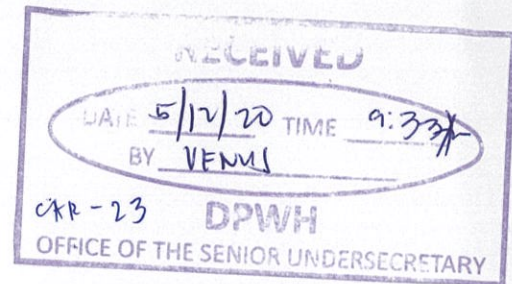 RECEIVED
DATE 5/12/20 TIME 9:33
BY VENUS
CAR-23 DPWH
OFFICE OF THE SENIOR UNDERSECRETARY